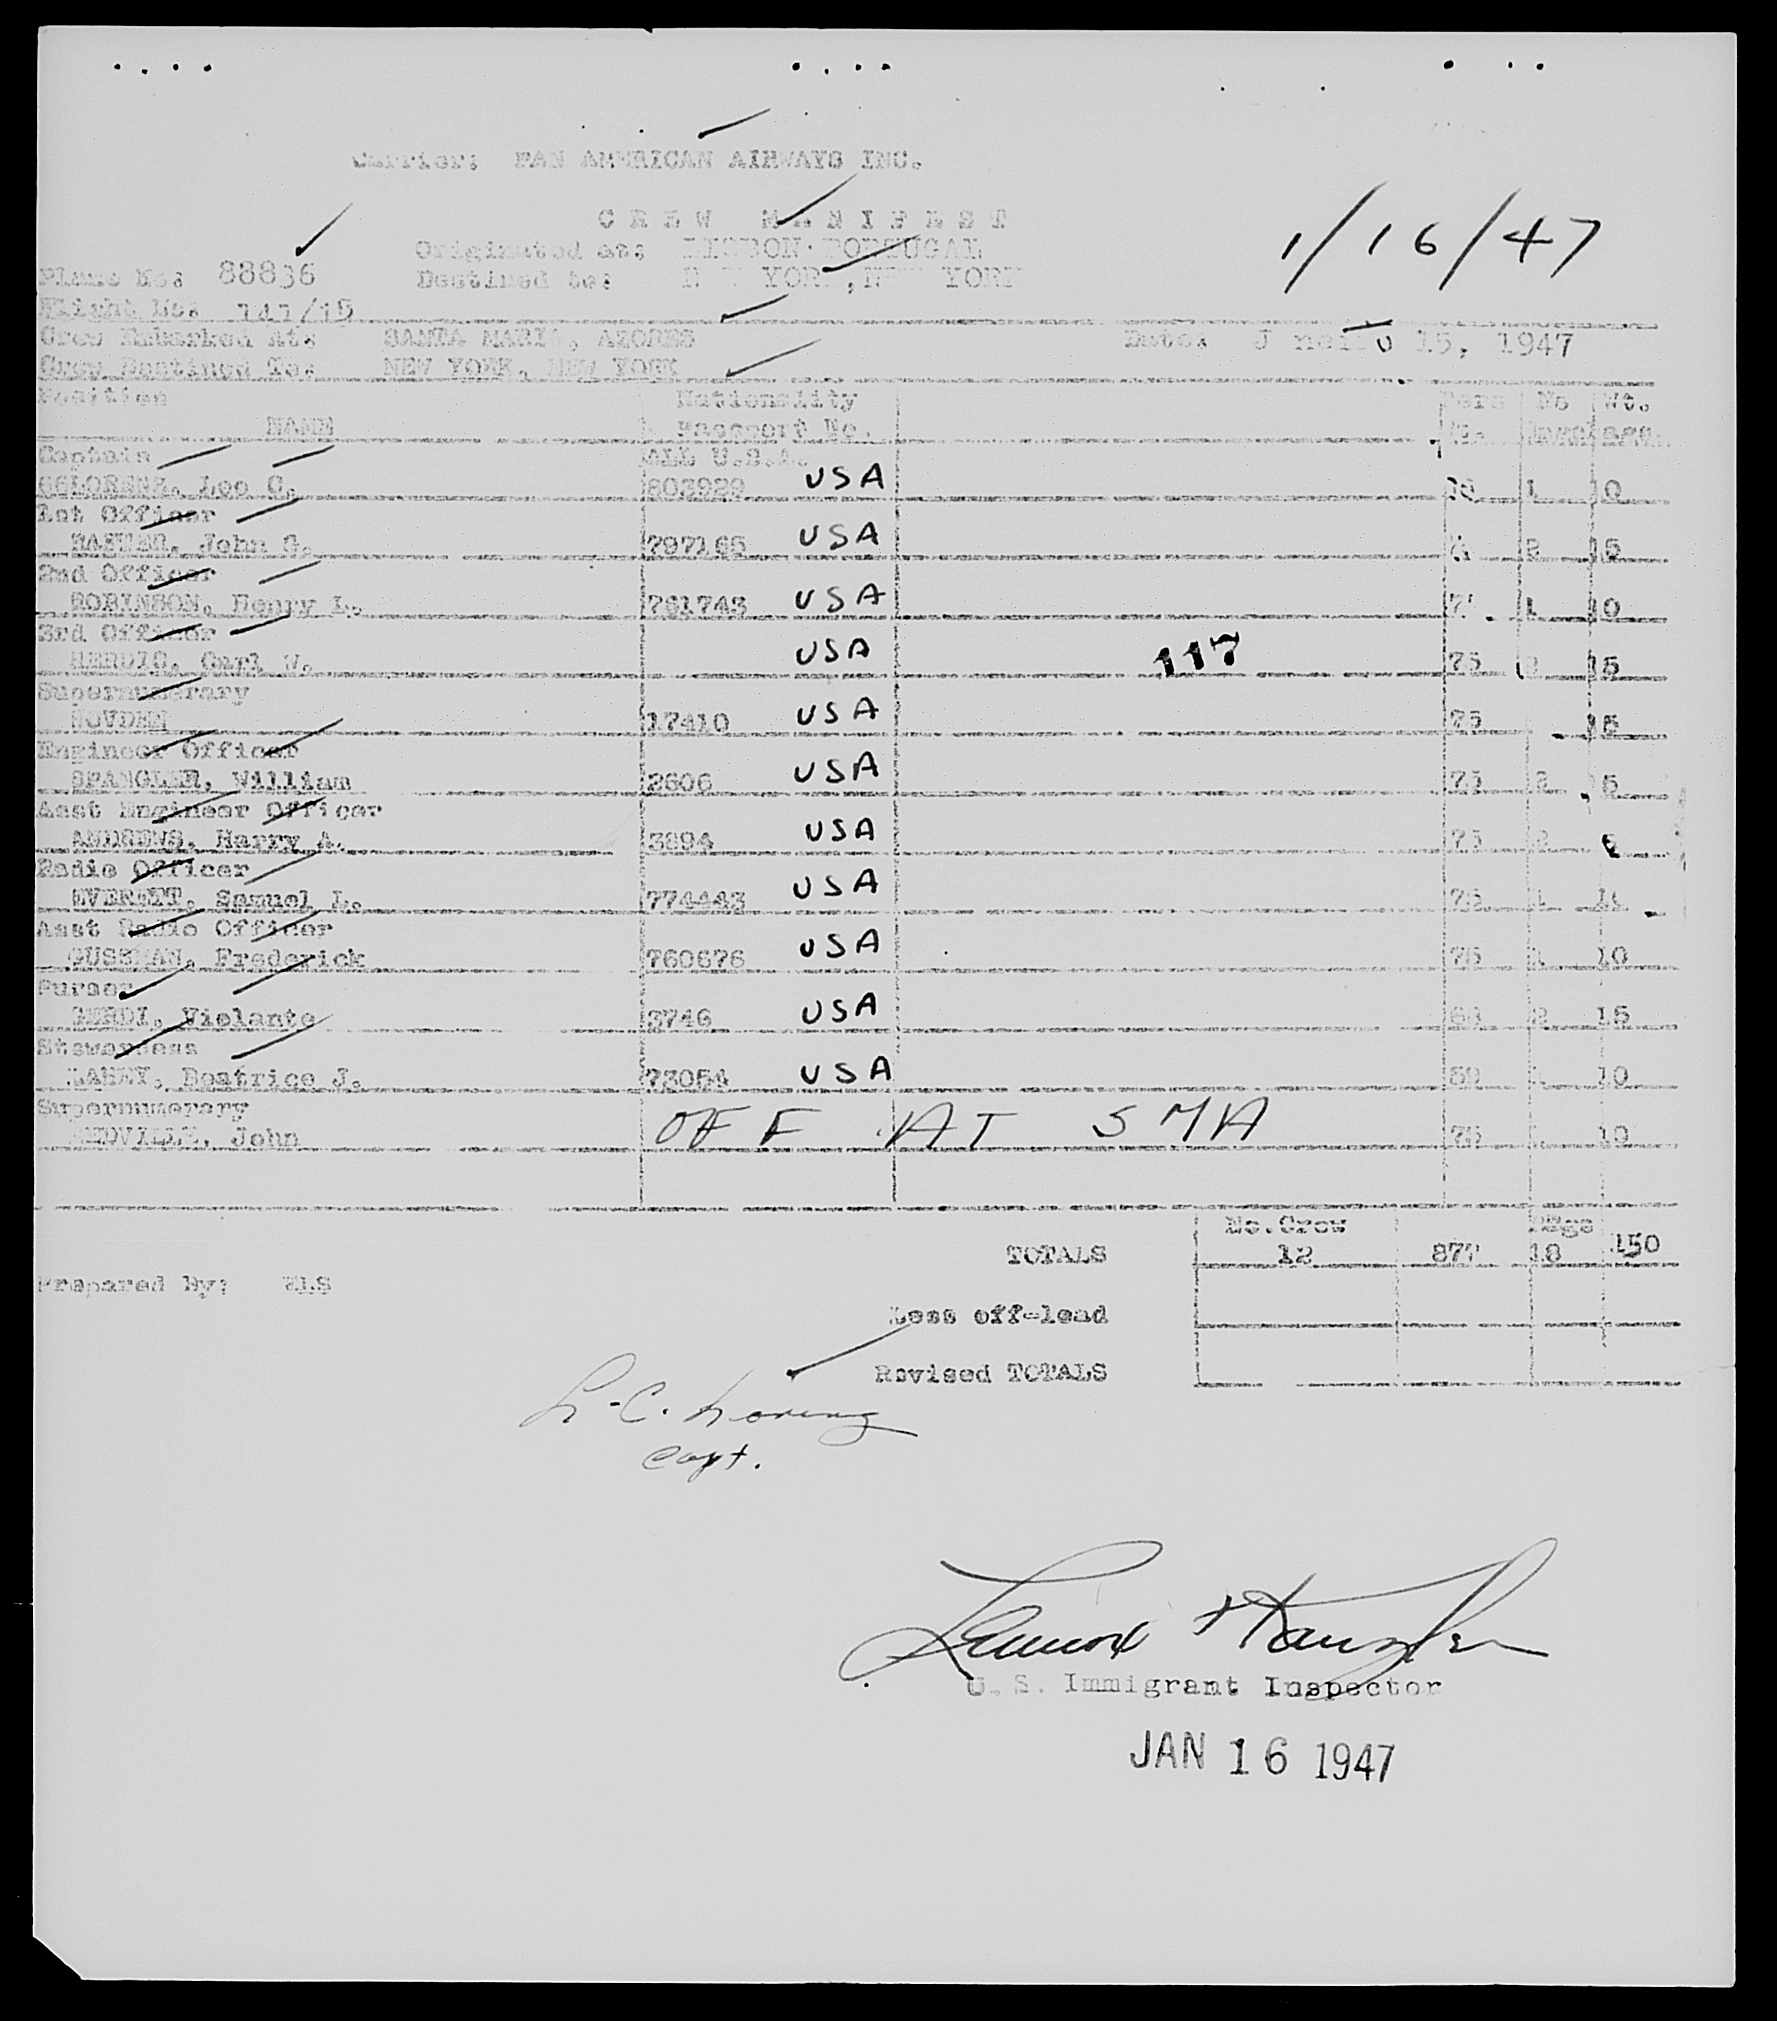 Carrier: PAN AMERICAN AIRWAYS INC.
CREW MANIFEST
1/16/47
Originated at: LISBON PORTUGAL
Plane No: 88836
Destined to: NEW YORK, NEW YORK
Flight No:
Crew Embarked At: SANTA MARIA, AZORES
Date: 15, 1947
Crew Destined To: NEW YORK, NEW YORK
Position Nationality Pers No Wt.
NAME Passport No.
Captain ALL U.S.A.
Leo C. 803929 USA 1 10
1st Officer
John G. 797165 USA 2 15
2nd Officer
ROBINSON, Henry L. 761743 USA 1 10
3rd Officer
Carl W. USA 117 75 2 15
Supernumerary
17410 USA 75 15
Engineer Officer
SPANGLER, William 2606 USA 75 2
Asst Engineer Officer
ANDREWS, Harry A. 3894 USA 75 2
Radio Officer
EVERETT, Samuel L. 774443 USA 75 1
Asst Radio Officer
GUSSMAN, Frederick 760676 USA 75 1 10
Purser
Violante 3746 USA 2 15
Stewardess
LAHEY, Beatrice J. 73054 USA 59 1 10
Supernumerary
John OFF AT SMA 75 10
No. Crew Bags
TOTALS 12 877 18 150
Prepared By:
Less off-load
Revised TOTALS
L. C. Lorenz
Capt.
U. S. Immigrant Inspector
JAN 16 1947